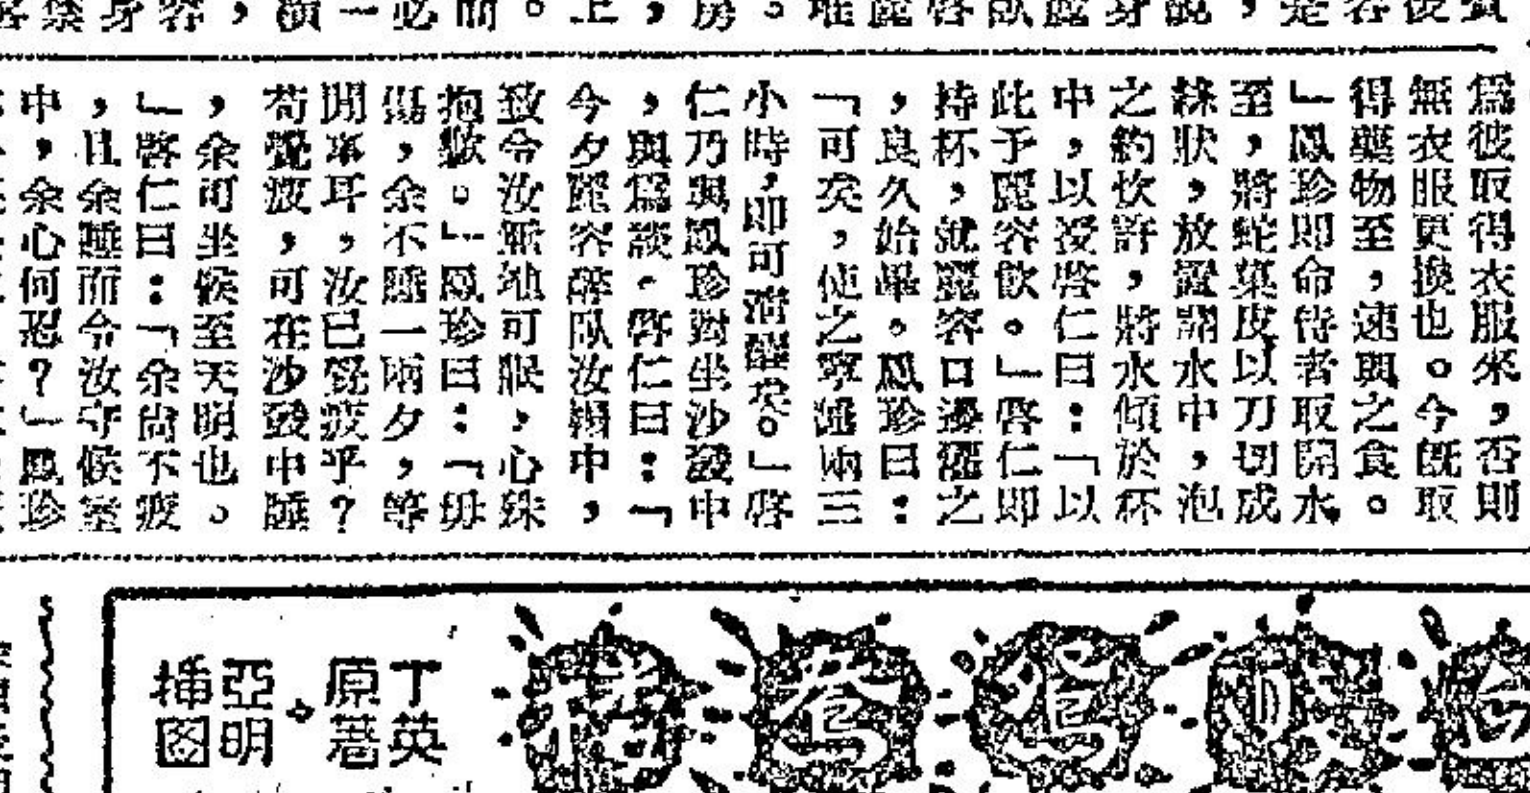 爲彼取得衣服來，否則
無衣服更換也。今既取
得藥物至，速與之食。
」鳳珍即命侍者取開水
至，將蛇藥皮以刀切成
絲狀，放置開水中，泡
之約炊許，將水傾於杯
中，以授啓仁曰：「以
此予麗容飲。」啓仁即
持杯，就麗容口邊灌之
，良久始畢。鳳珍曰：
「可矣，使之寧睡兩三
小時，即可清醒矣。」啓
仁乃與鳳珍對坐沙發中
，與爲談。啓仁曰：「
今夕麗容醉臥汝榻中，
致令汝無地可眠，心殊
抱歉。」鳳珍曰：「毋
傷，余不睡一兩夕，等
閒事耳，汝已覺疲乎？
苟覺疲，可在沙發中睡
，余可坐候至天明也。
」啓仁曰：「余尚不疲
，且余睡而令汝守候室
中，余心何忍？」鳳珍
丁英
原著
亞明
插图